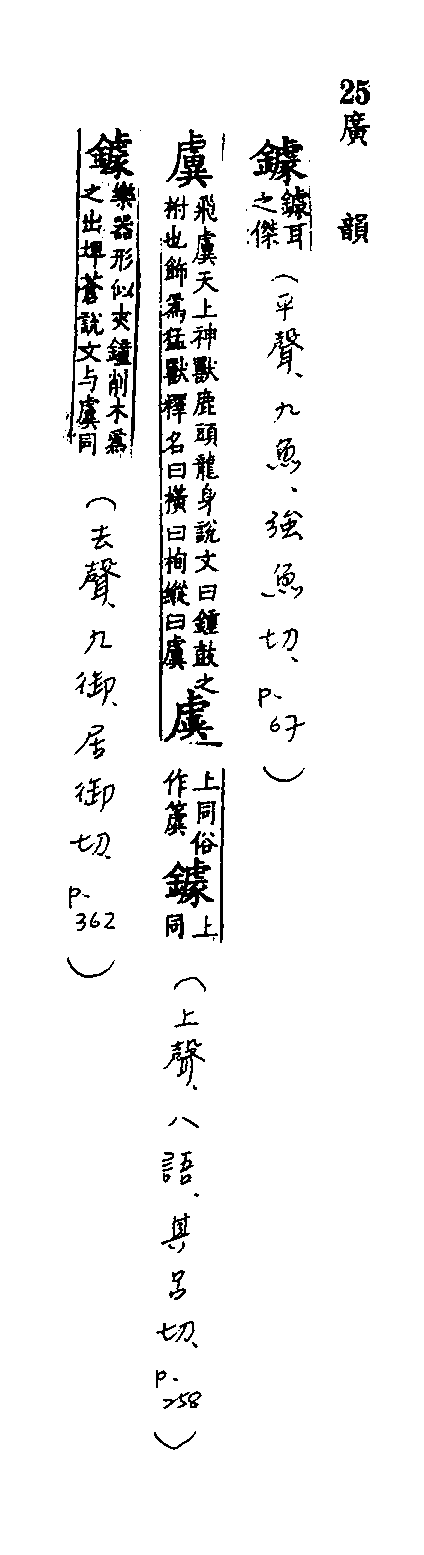 25 廣韻
鐻 鐻耳之傑（平聲、九魚、強魚切、p.67）
虡 飛虡天上神獸鹿頭龍身說文曰鍾鼓之柎也飾爲猛獸釋名曰橫曰栒縱曰虡 虡 上同俗作簴 鐻 上同（上聲、八語、其呂切、p.258）
鐻 樂器形似夾鐘削木爲之出埤蒼說文与虡同（去聲、九御、居御切、p.362）